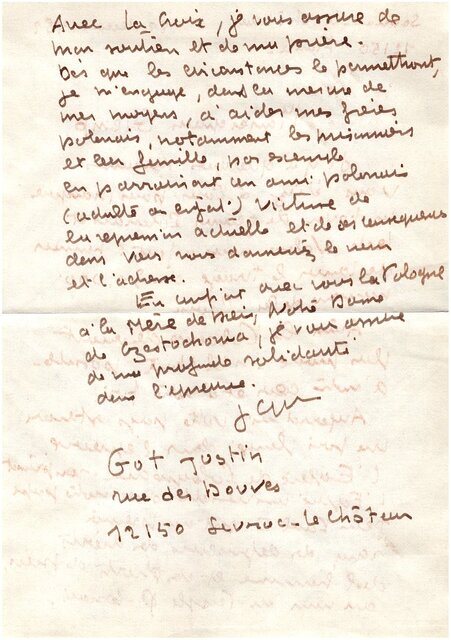 Avec la Croix, je vous assure de
mon soutien et de ma prière.
Dès que les circonstances le permettront,
je m'engage, dans la mesure de
mes moyens, à aider mes frères
polonais, notamment les prisonniers
et leur famille, par exemple
en parrainant un ami polonais
(adulte ou enfant) victime de
la repression actuelle et de ses consequences
dont vous nous donnerez le nom
et l'adresse.
En confiant avec vous la Pologne
à la Mère de Dieu, Notre Dame
de Czestochowa, je vous assure
de ma profonde solidarité
dans l'épreuve.
Got Justin
rue des Douves
12150 Severac-le-Château